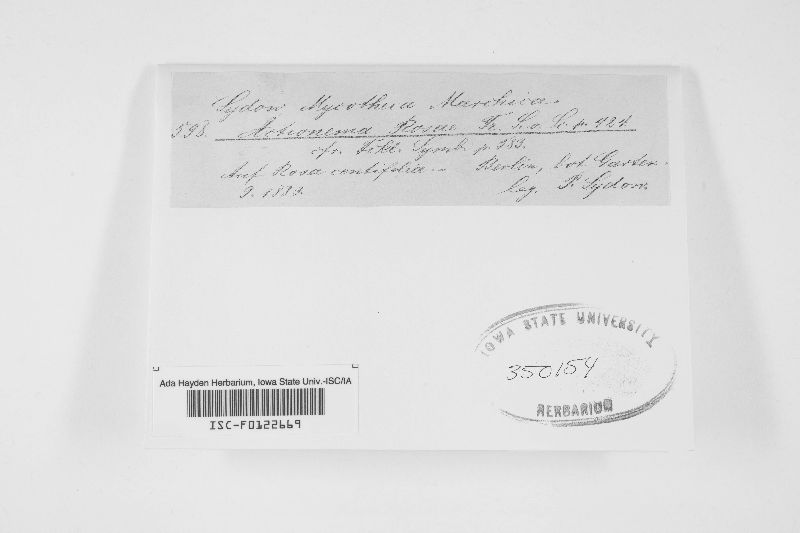 Sydow Mycotheca Marchica.
598. Actionema Rosae Fr. S. v. S. p. 424.
cfr. Fckl. Symb. p. 383.
Auf Rosa centifolia. – Berlin, bot. Garten.
9. 1883. leg. P. Sydow.
IOWA STATE UNIVERSITY
350154
HERBARIUM
Ada Hayden Herbarium, Iowa State Univ.-ISC/IA
ISC-F0122669